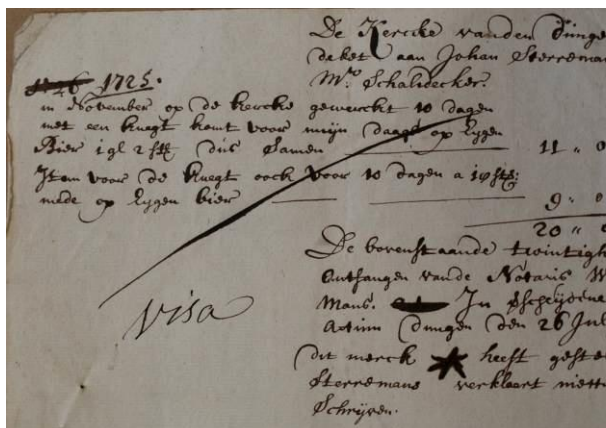 De Kercke vanden Dunge
deket aan Johan Sterreman
Mr. Schalidecker.
1725.
in November op de Kercke gewerckt 10 dagen
met een knegt komt voor mijn daags op Eygen
Bier 1 gl 2 st dus Samen 11 " 0
Item voor de knegt oock voor 10 dagen a 18 st:
mede op Eygen bier 9 " 0
20 "
De bovenstaande twintigh
Ontfangen vande Notaris W
Mans. In
Actum Dungen den 26 Jul
visa
dit merck heeft gestel
Sterremans verklaert niett
Schrijven.